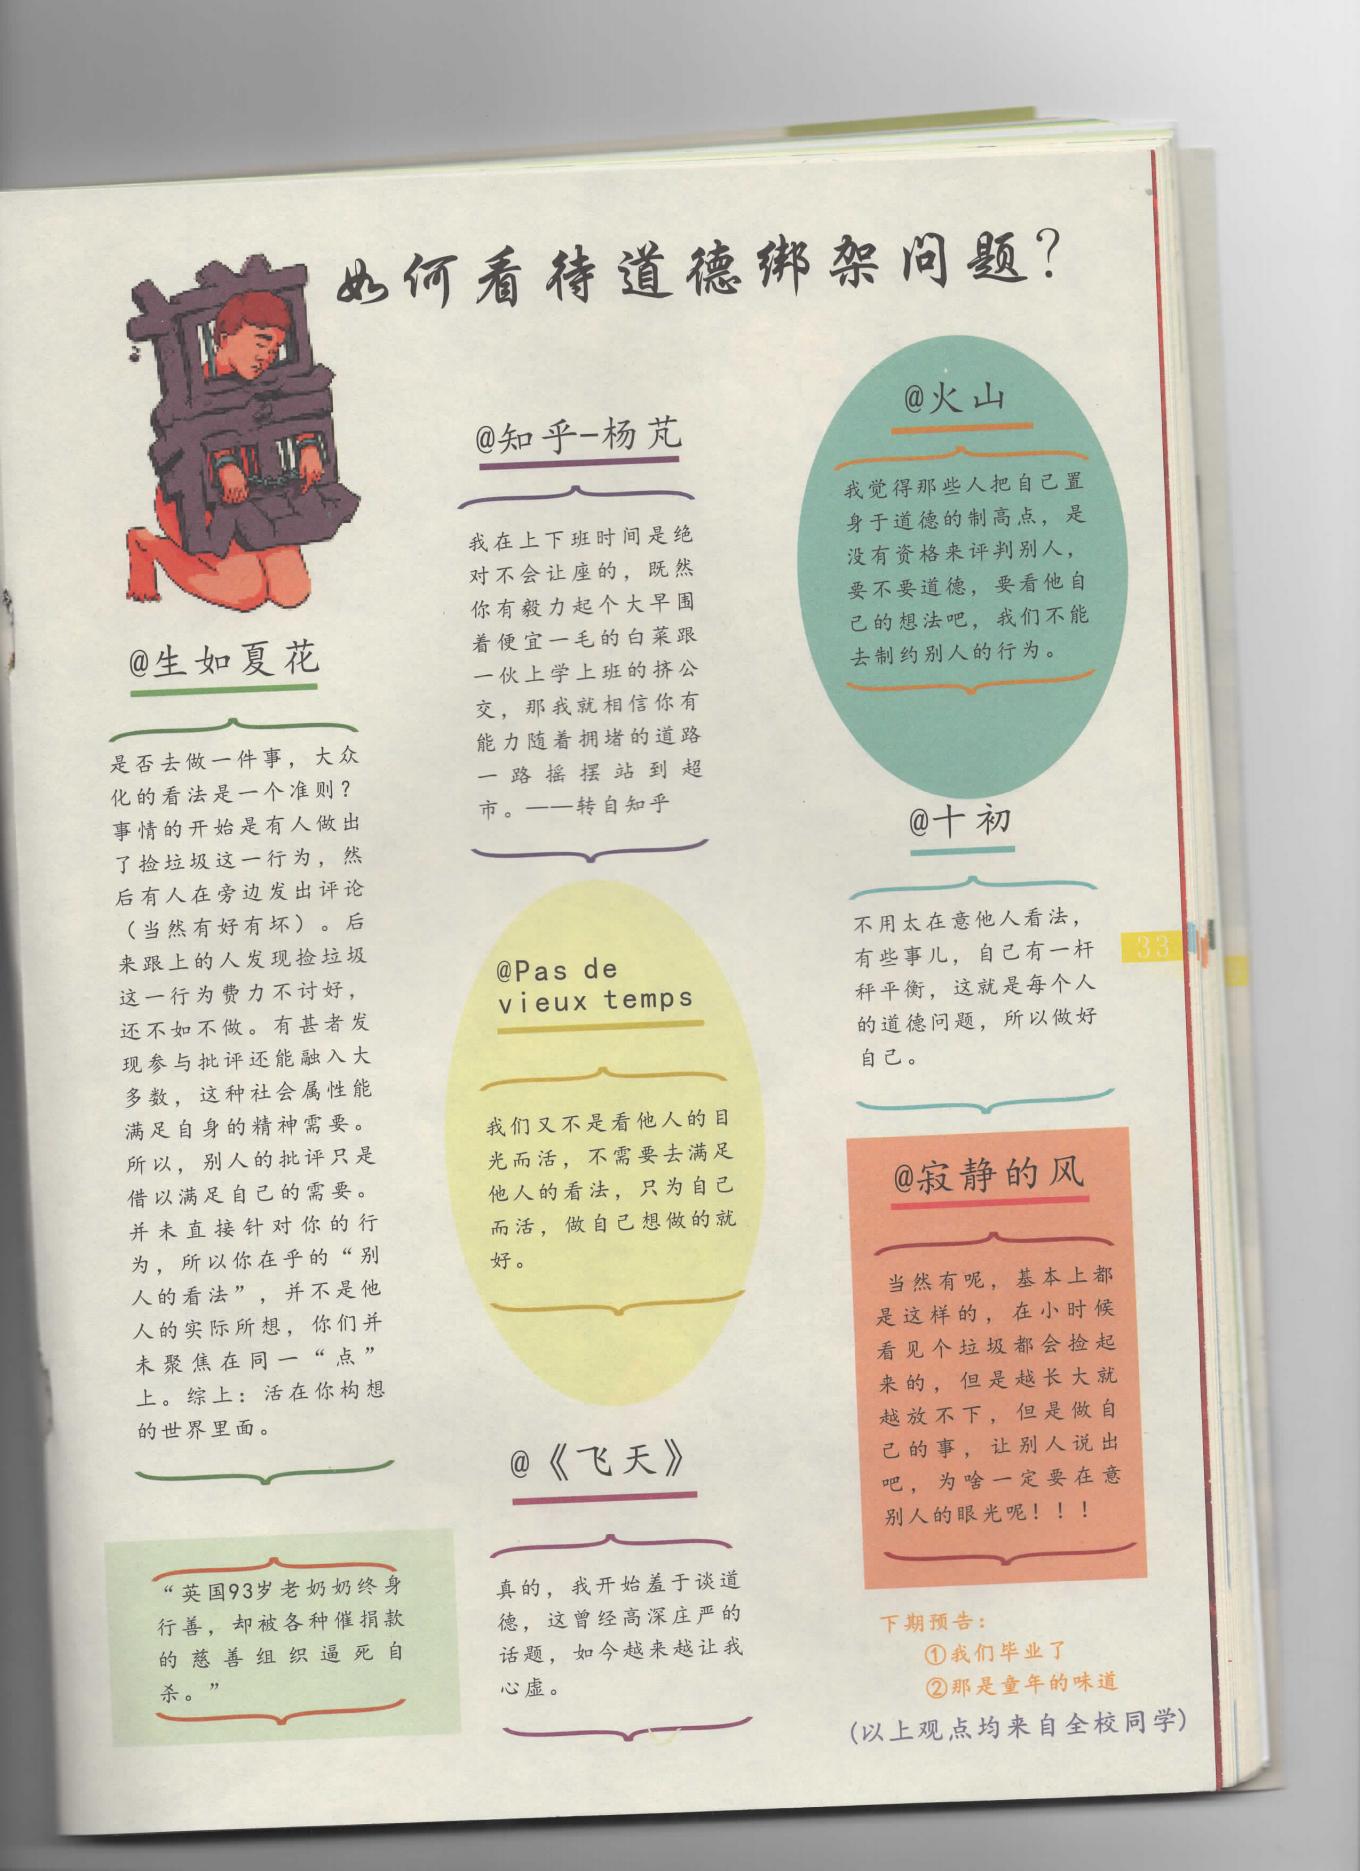 如何看待道德绑架问题?
@生如夏花
是否去做一件事，大众
化的看法是一个准则?
事情的开始是有人做出
了捡垃圾这一行为，然
后有人在旁边发出评论
（当然有好有坏）。后
来跟上的人发现捡垃圾
这一行为费力不讨好，
还不如不做。有甚者发
现参与批评还能融入大
多数，这种社会属性能
满足自身的精神需要。
所以，别人的批评只是
借以满足自己的需要。
并未直接针对你的行
为，所以你在乎的“别
人的看法”，并不是他
人的实际所想，你们并
未聚焦在同一“点”
上。综上：活在你构想
的世界里面。
“英国93岁老奶奶终身
行善，却被各种催捐款
的慈善组织逼死自
杀。”
@知乎-杨芃
我在上下班时间是绝
对不会让座的，既然
你有毅力起个大早围
着便宜一毛的白菜跟
一伙上学上班的挤公
交，那我就相信你有
能力随着拥堵的道路
一路摇摆站到超
市。——转自知乎
@Pas de
vieux temps
我们又不是看他人的目
光而活，不需要去满足
他人的看法，只为自己
而活，做自己想做的就
好。
@《飞天》
真的，我开始羞于谈道
德，这曾经高深庄严的
话题，如今越来越让我
心虚。
@火山
我觉得那些人把自己置
身于道德的制高点，是
没有资格来评判别人，
要不要道德，要看他自
己的想法吧，我们不能
去制约别人的行为。
@十初
不用太在意他人看法，
有些事儿，自己有一杆
秤平衡，这就是每个人
的道德问题，所以做好
自己。
@寂静的风
当然有呢，基本上都
是这样的，在小时候
看见个垃圾都会捡起
来的，但是越长大就
越放不下，但是做自
己的事，让别人说出
吧，为啥一定要在意
别人的眼光呢！！！
下期预告：
①我们毕业了
②那是童年的味道
(以上观点均来自全校同学)
33